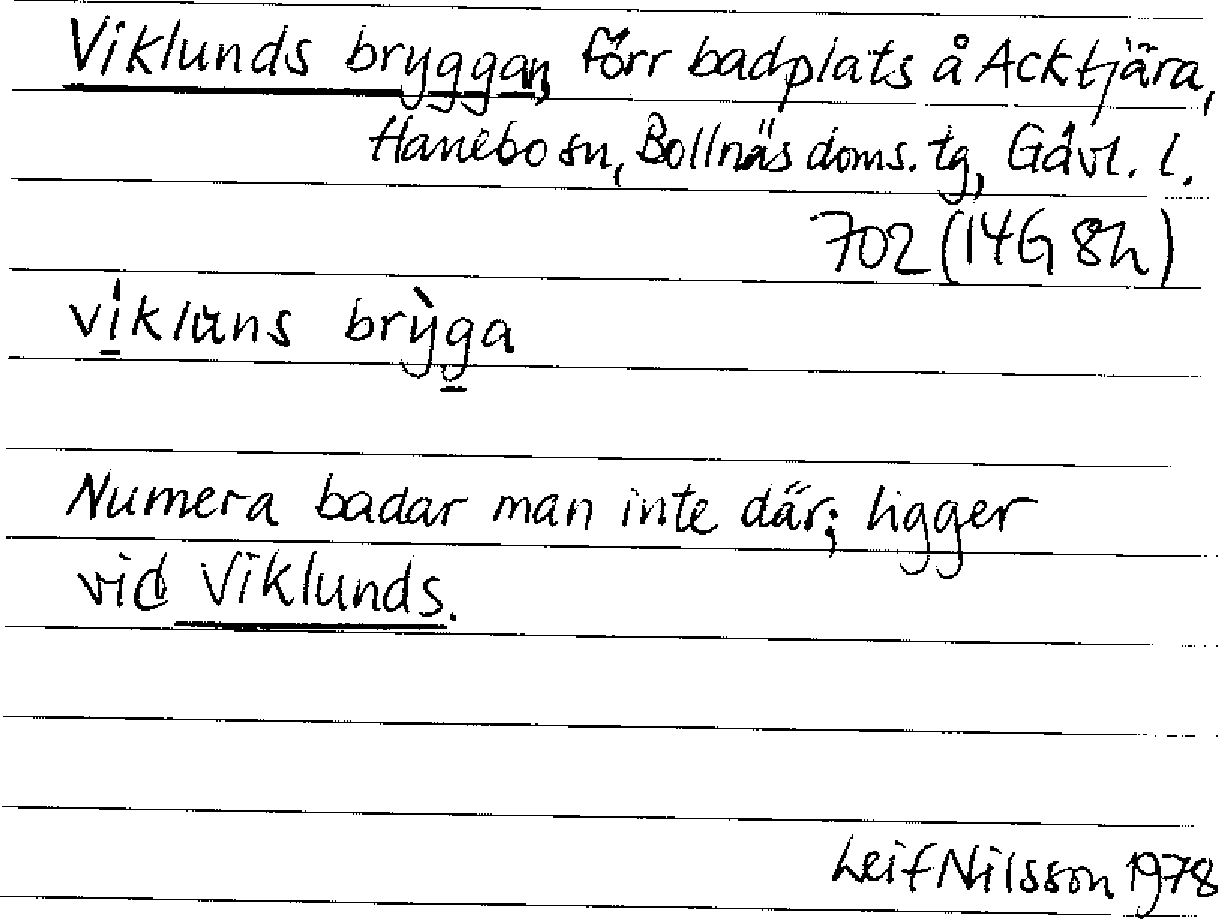 Viklunds bryggan, förr badplats å Acktjära,
Hanebo sn, Bollnäs doms. tg, Gävl. l.
702 (14G 8h)
víkluns brỳga
Numera badar man inte där; ligger
vid Viklunds.
Leif Nilsson 1978